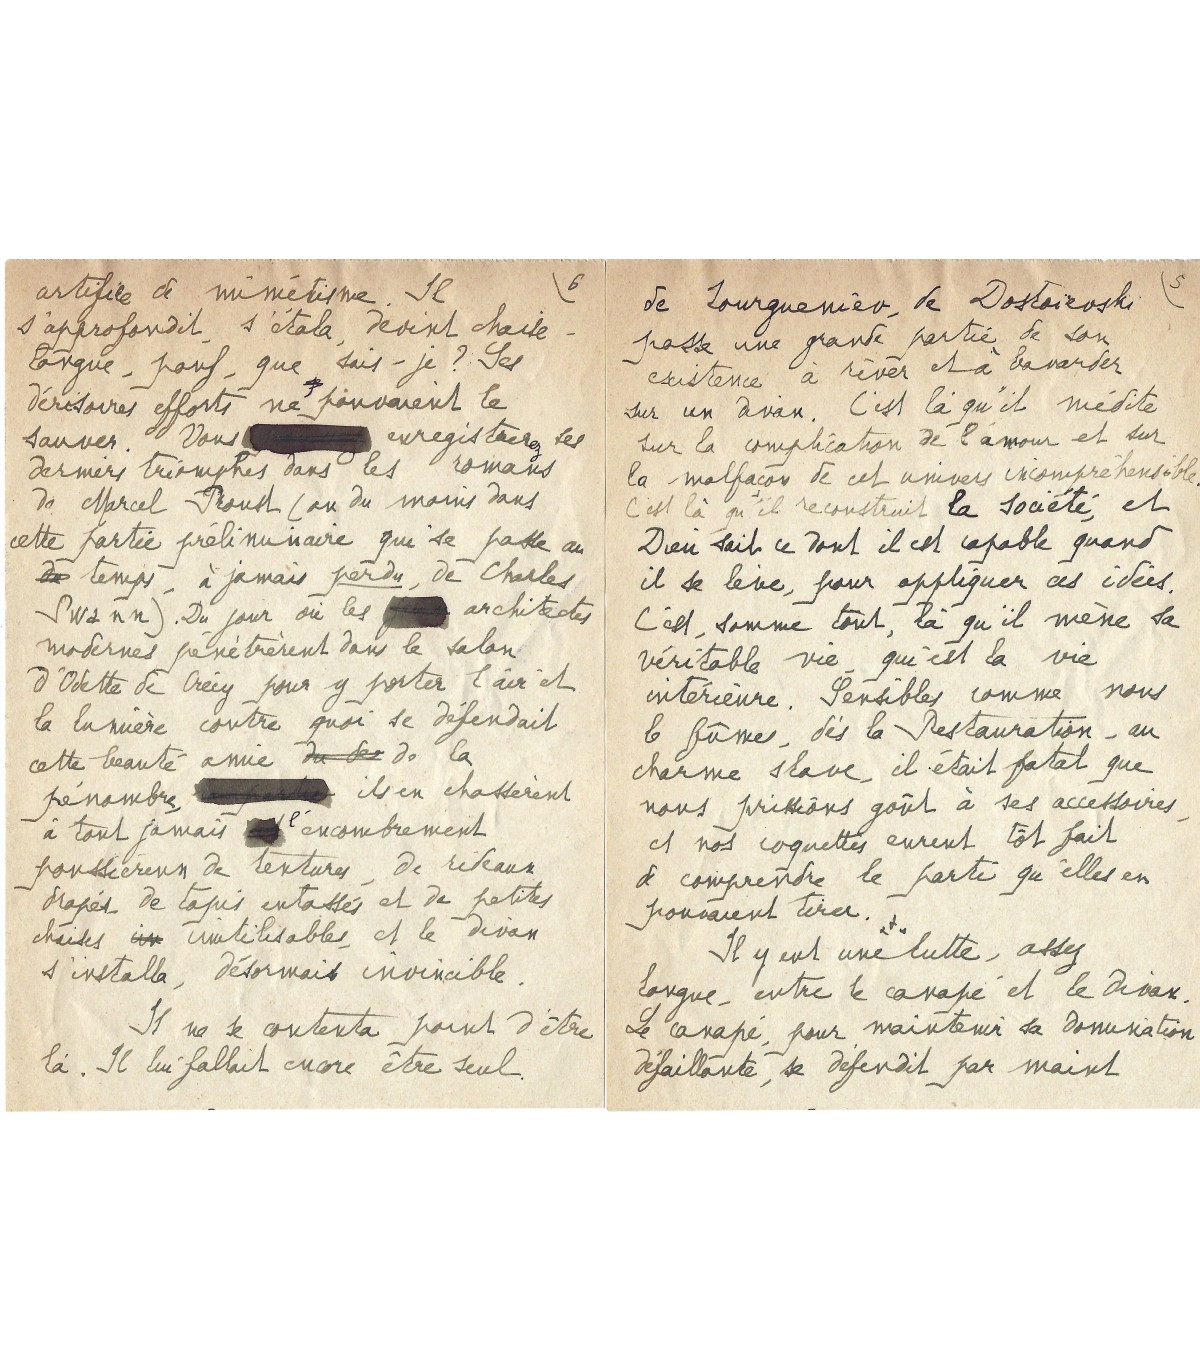 5
de Tourgueniev, de Dostoievski
passe une grande partie de son
existence à rêver et à bavarder
sur un divan. C'est là qu'il médite
sur la complication de l'amour et sur
la malfaçon de cet univers incompréhensible.
C'est là qu'il reconstruit la société, et
Dieu sait ce dont il est capable quand
il se lève, pour appliquer ces idées.
C'est, somme tout, là qu'il mène sa
véritable vie, qui est la vie
intérieure. Sensibles comme nous
le fûmes, dès la Restauration, au
charme slave, il était fatal que
nous prissions goût à ses accessoires,
et nos coquettes eurent tôt fait
de comprendre le parti qu'elles en
pouvaient tirer.
Il y eut une lutte, assez
longue, entre le canapé et le divan.
Le canapé, pour maintenir sa domination
défaillante, se défendit par maint
6
artifice de mimétisme. Il
s'approfondit, s'étala, devint chaise-
longue, pouf, que sais-je? Ses
dérisoires efforts ne pouvaient le
sauver. Vous enregistrerez ses
derniers triomphes dans les romans
de Marcel Proust (ou du moins dans
cette partie préliminaire qui se passe au
temps, à jamais perdu, de Charles
Swann). Du jour où les architectes
modernes pénétrèrent dans le salon
d'Odette de Crécy pour y porter l'air et
la lumière contre quoi se défendait
cette beauté amie de la
pénombre, ils en chassèrent
à tout jamais l'encombrement
poussiereux de tentures, de rideaux
drapés, de tapis entassés et de petites
chaises inutilisables, et le divan
s'installa, désormais invincible.
Il ne se contenta point d'être
là. Il lui fallait encore être seul.